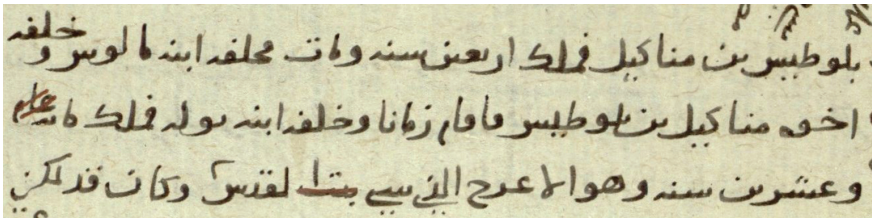 بلوطيس بن مناكيل فملك اربعين سنه ومات فخلفه ابنه مالوس وخلفه
اخوه مناكيل بن بلوطيس فاقام زمانا وخلفه ابنه بوله فملك مائه عام
وعشرين سنه وهو الاعرج الذي سبى لقدس وكان قد تمكن